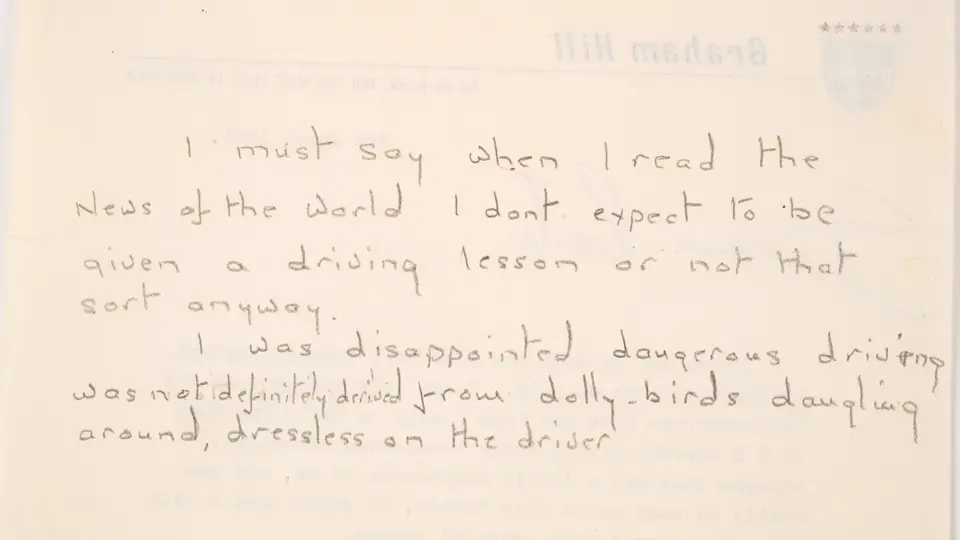 Graham Hill
I must say when I read the
News of the World I dont expect to be
given a driving lesson or not that
sort anyway.
I was disappointed dangerous driving
was not definitely derived from dolly-birds dangling
around, dressless on the driver